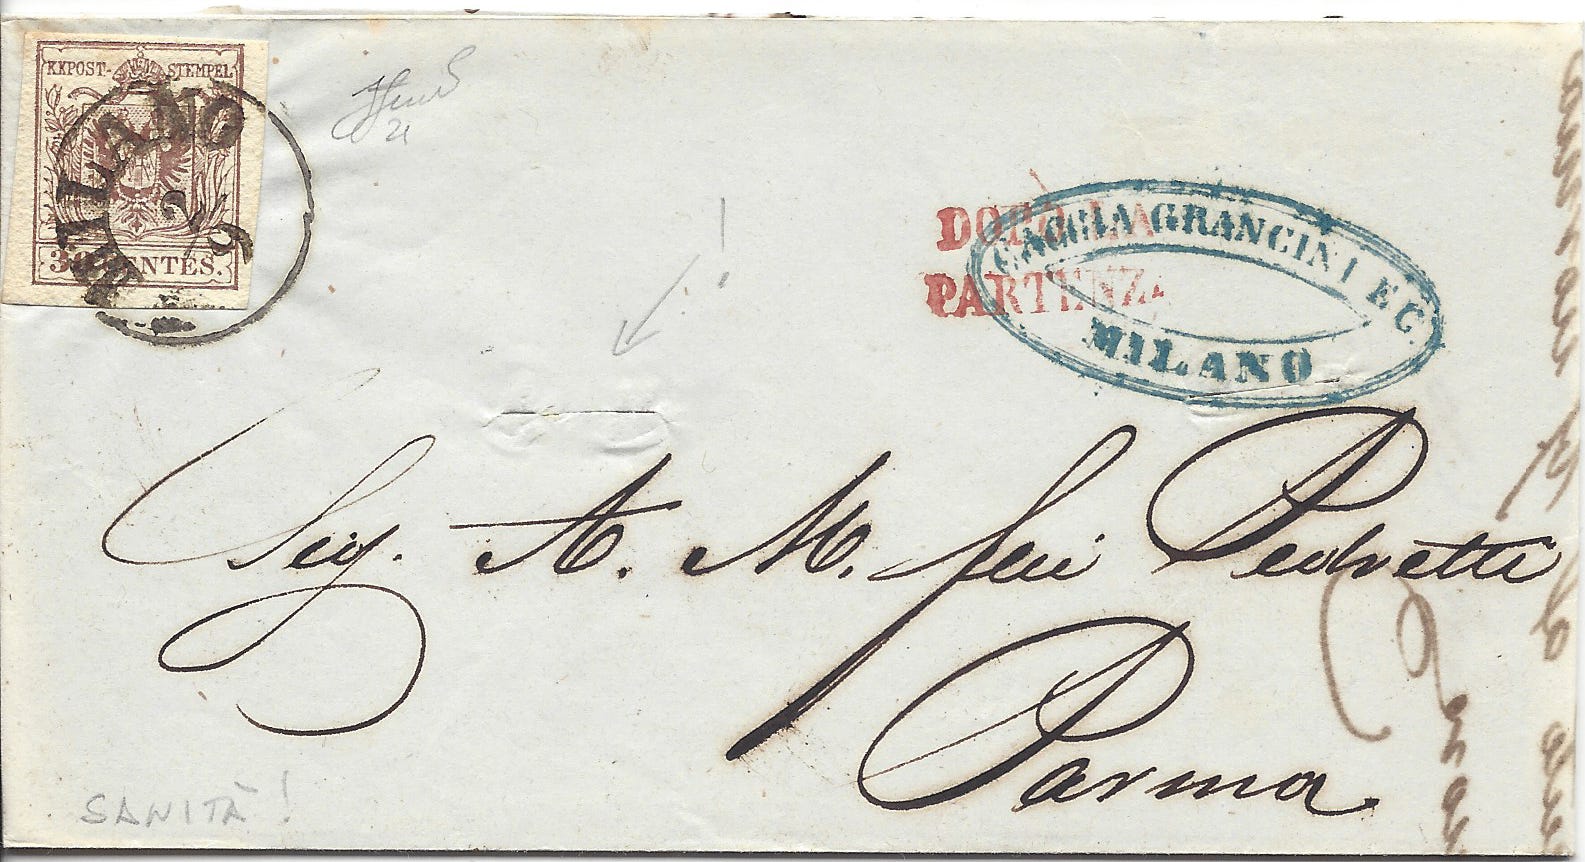 KKPOST-STEMPEL
30 CENTES.
MILANO
2
6
DOPO LA
PARTENZA
GAGGIA GRANCINI E C.
MILANO
!
Sig. A. M. feu Pedretti
Parma
SANITÀ!